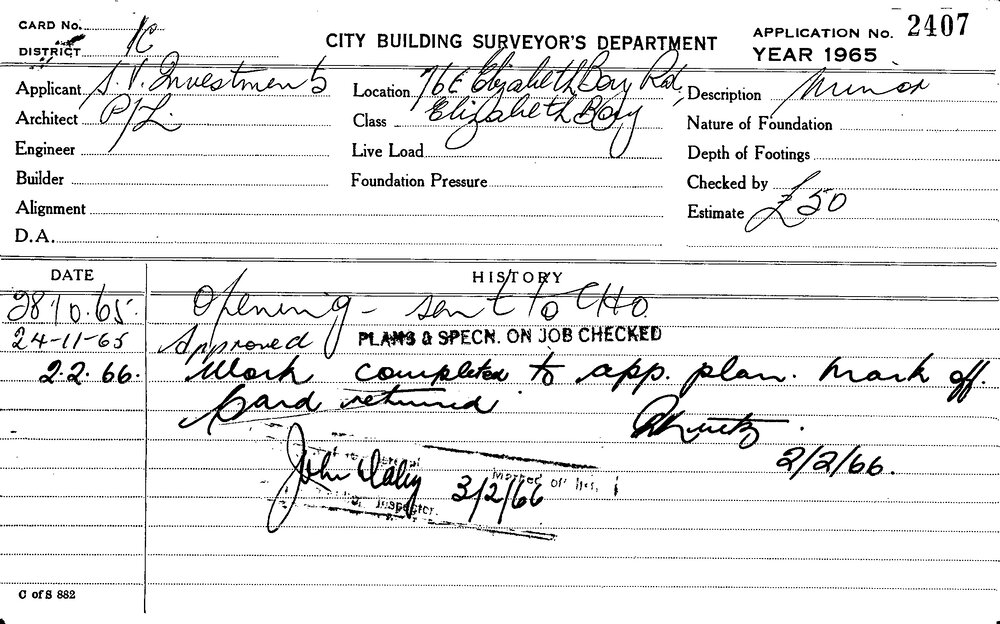 CARD No. 1C
DISTRICT
CITY BUILDING SURVEYOR'S DEPARTMENT
APPLICATION No. 2407
YEAR 1965
Applicant S. V. Investments
Architect P/L.
Engineer
Builder
Alignment
D.A.
Location 76E Elizabeth Bay Rd,
Class Elizabeth Bay
Live Load
Foundation Pressure
Description Minor
Nature of Foundation
Depth of Footings
Checked by
Estimate £50
DATE HISTORY
28 10.65. Opening - sent to CHO.
24-11-65 Approved PLANS & SPECN. ON JOB CHECKED
2.2.66. Work completed to app. plan. Mark off.
Card returned
2/2/66.
John Daley 3/2/66
Inspector.
C of S 882